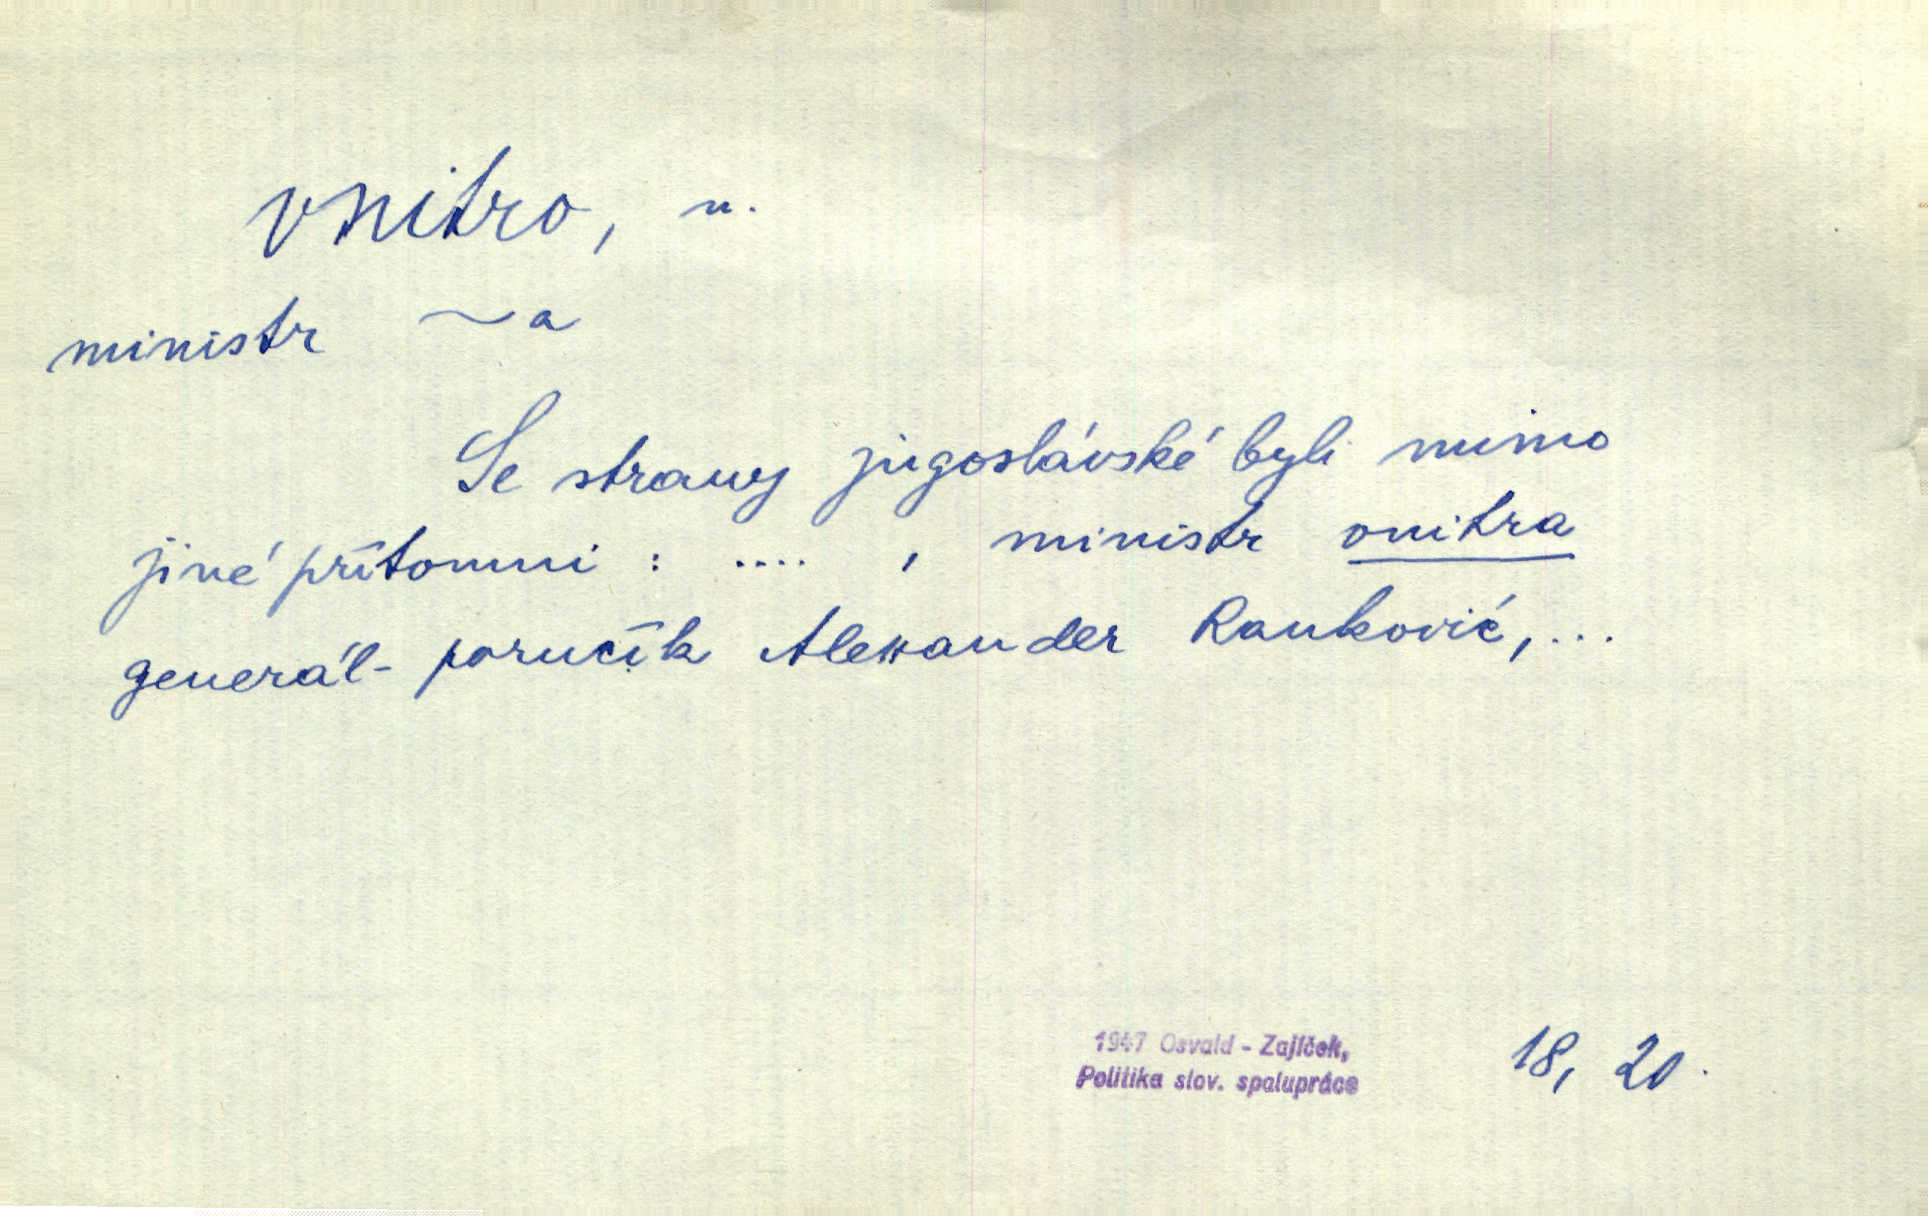 vnitro, n.
ministr ~a
Se strany jugoslávské byli mimo
jiné přítomni : .... , ministr vnitra
generál-poručík Alexander Ranković, ...
1947 Osvald - Zajíček,
Politika slov. spolupráce
18, 20.